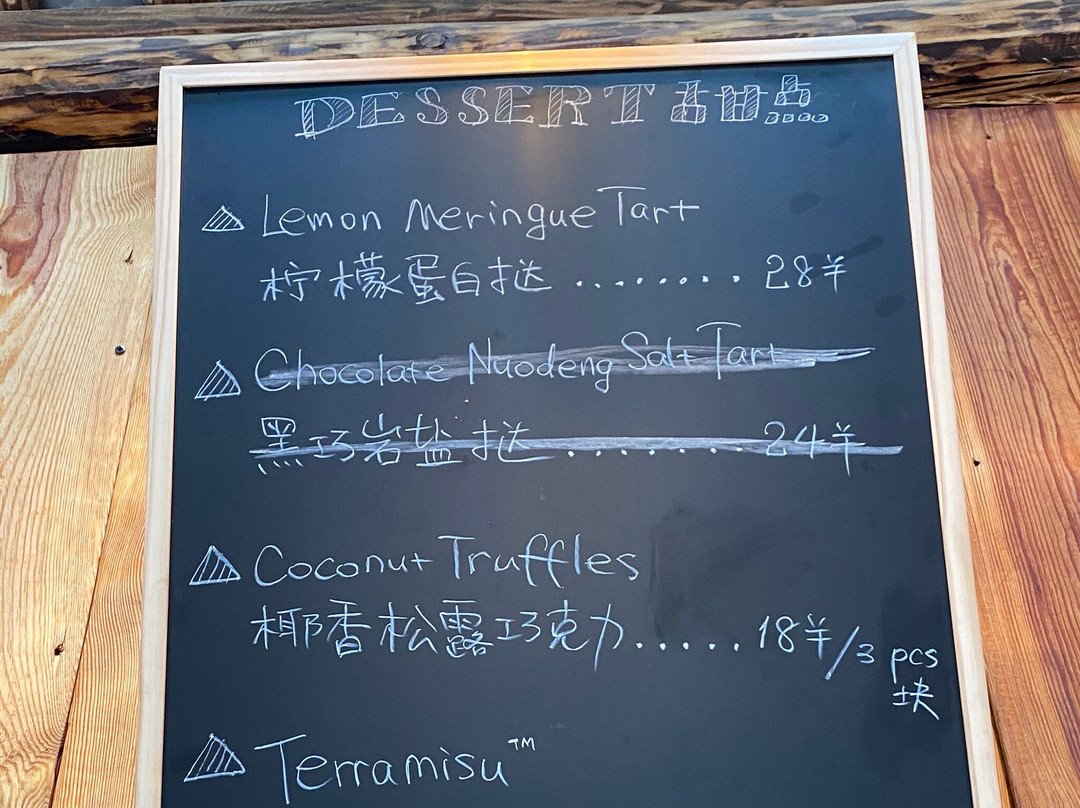 DESSERT 甜点
Lemon Meringue Tart
柠檬蛋白挞 ......... 28¥
Chocolate Nuodeng Salt Tart
黑巧岩盐挞 ........ 24¥
Coconut Truffles
椰香松露巧克力 ..... 18¥/3 pcs
块
Terramisu™